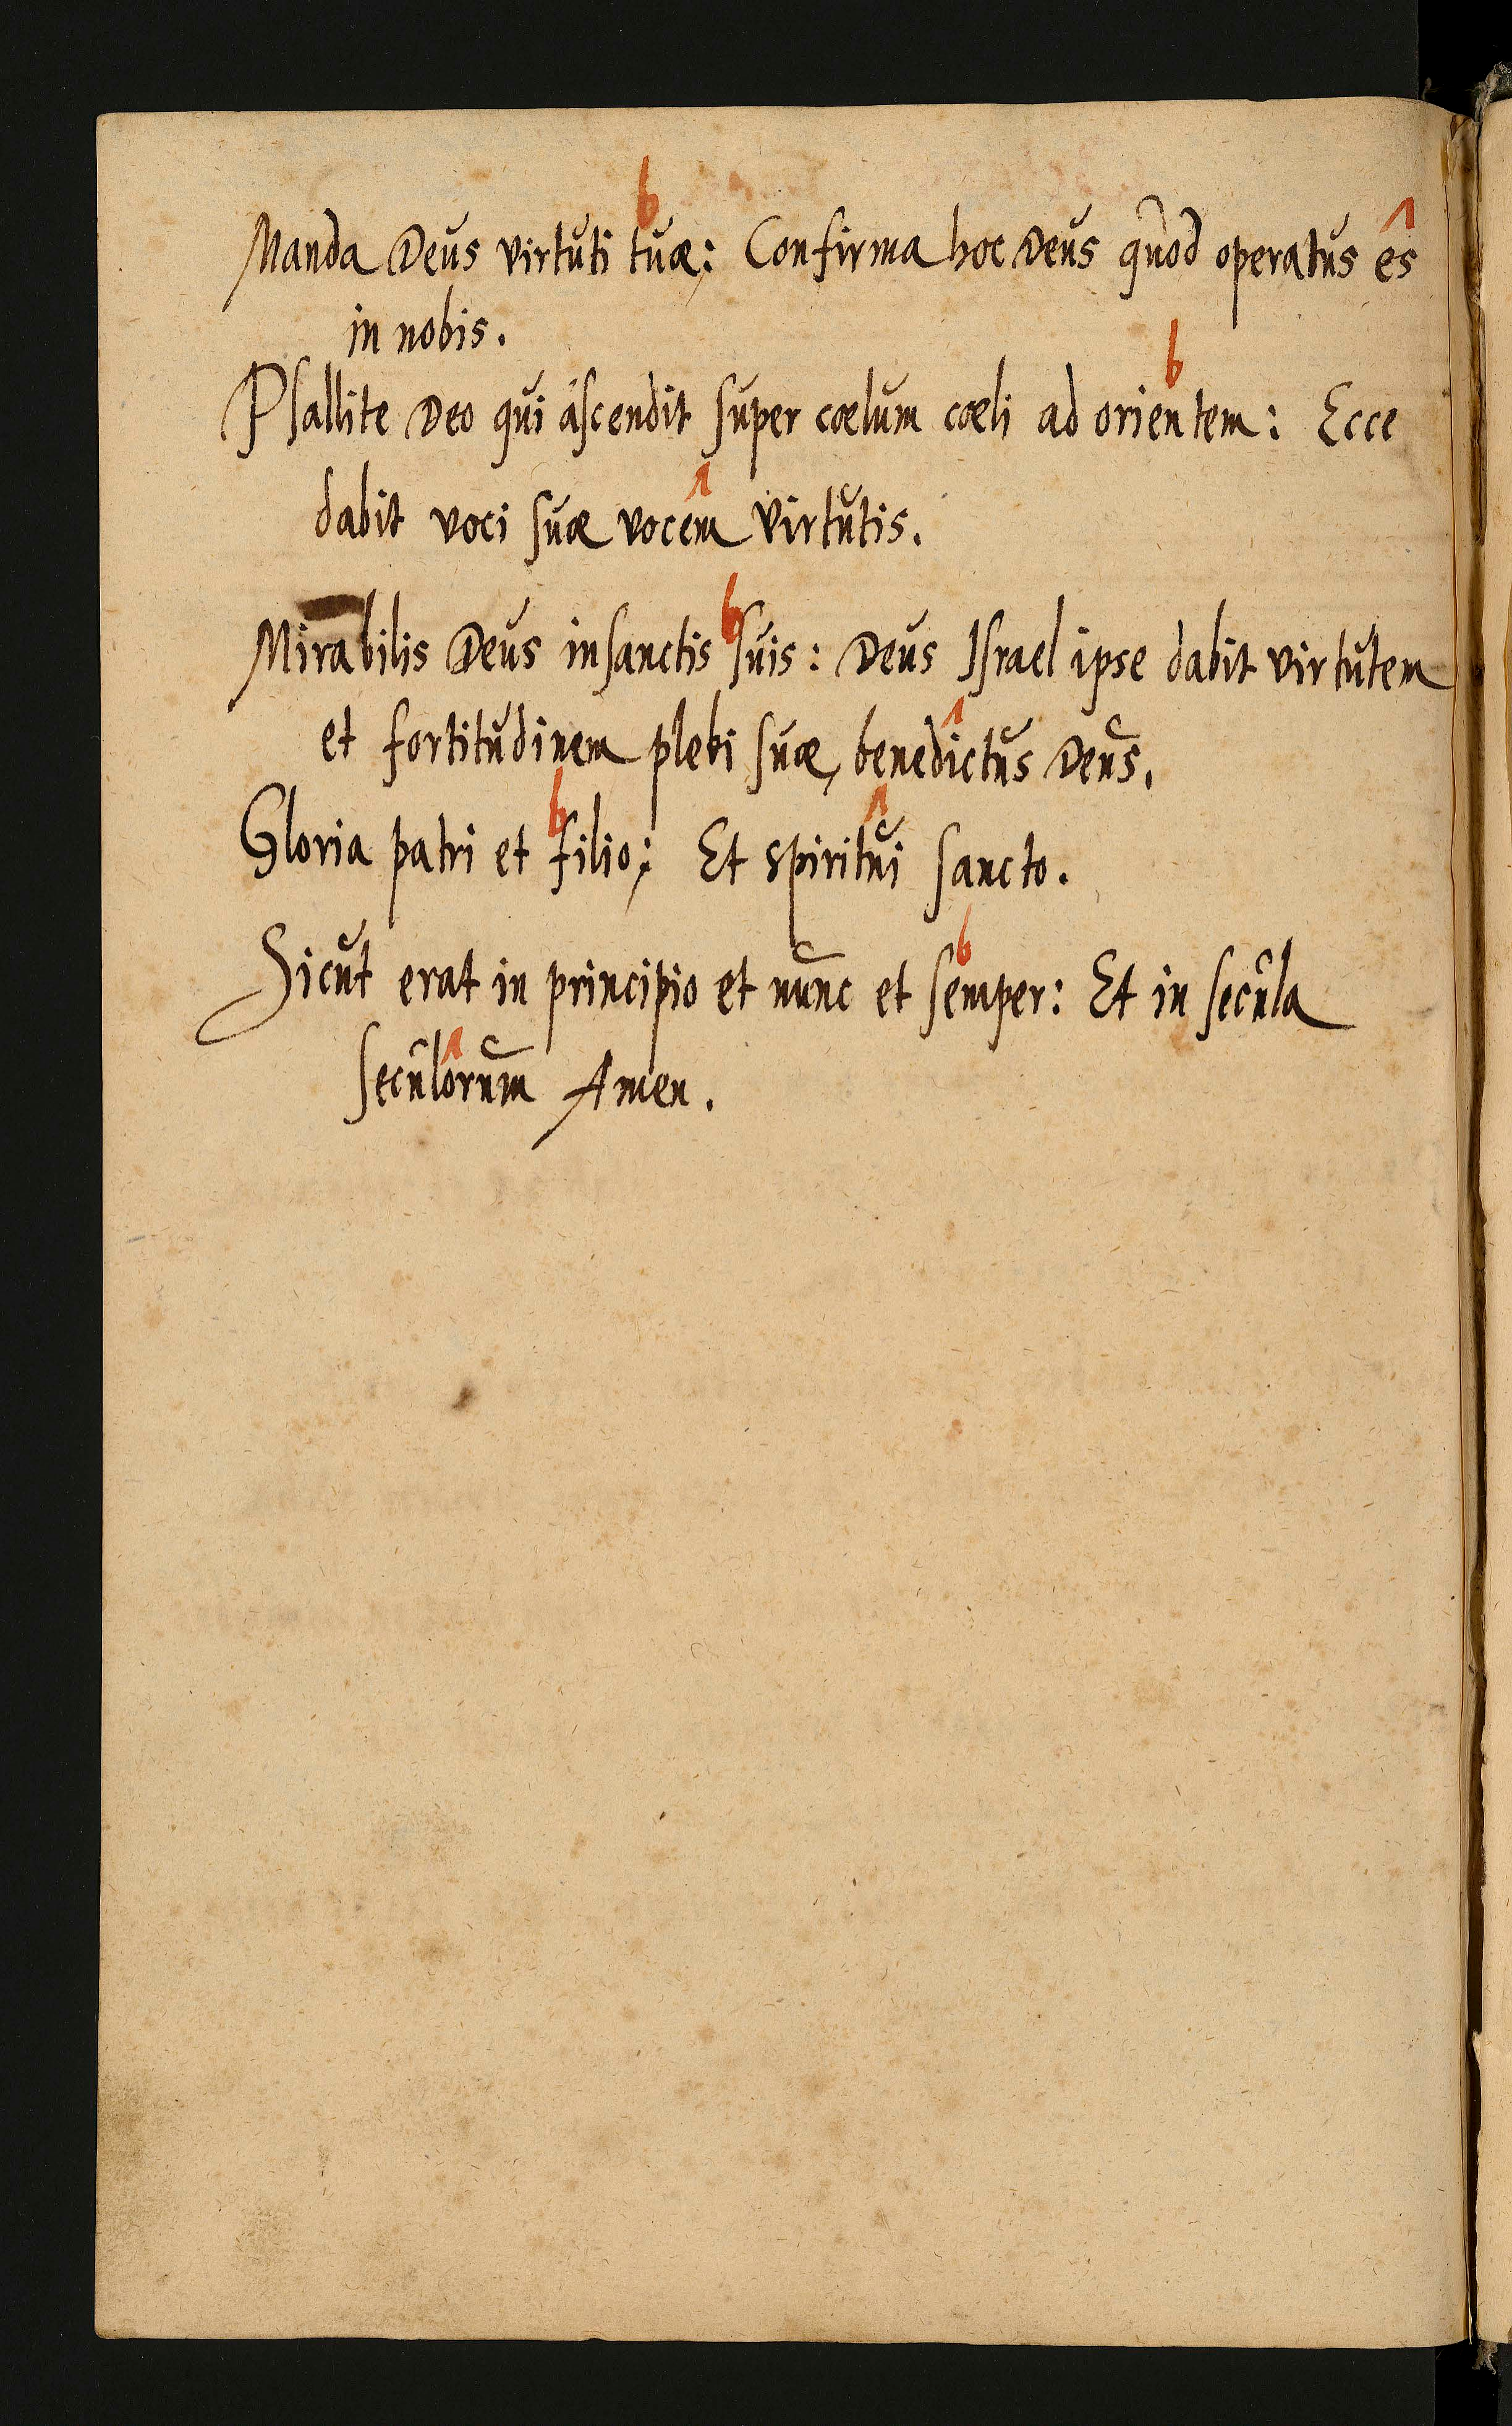 Manda Deus virtuti tuæ: Confirma hoc Deus quod operatus es
in nobis.
Psallite Deo qui ascendit super cœlum cœli ad orientem: Ecce
dabit voci suæ vocem virtutis.
Mirabilis Deus in sanctis suis: Deus Israel ipse dabit virtutem
et fortitudinem plebi suæ, benedictus Deus.
Gloria patri et filio: Et spiritui sancto.
Sicut erat in principio et nunc et semper: Et in secula
seculorum Amen.